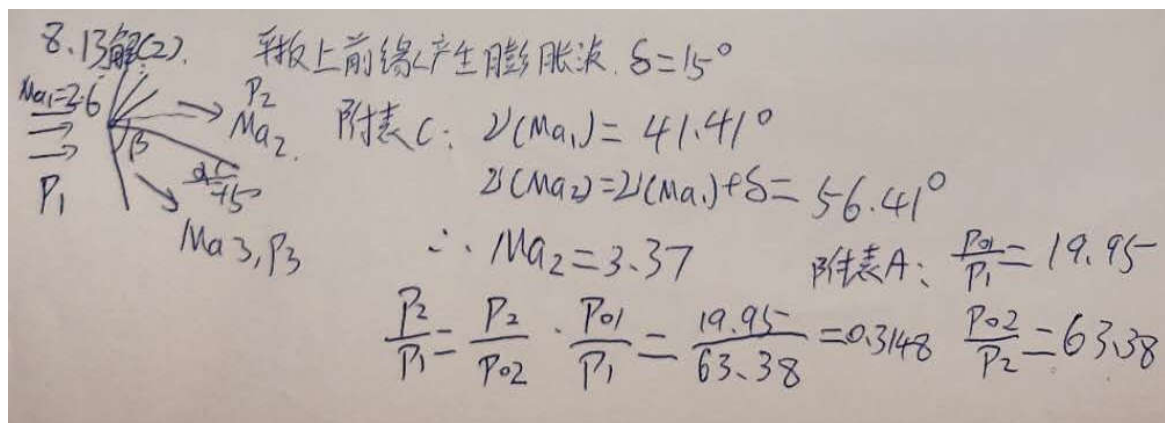 8.13解(2). 平板上前缘产生膨胀波. δ=15°
Ma₁=2.6
P₂
Ma₂.
β
P₁
α=15°
Ma3, P3
附表C: ν(Ma₁)=41.41°
ν(Ma₂)=ν(Ma₁)+δ=56.41°
∴ Ma₂=3.37 附表A: P₀₁/P₁=19.95
P₂/P₁=P₂/P₀₂·P₀₁/P₁=19.95/63.38=0.3148 P₀₂/P₂=63.38